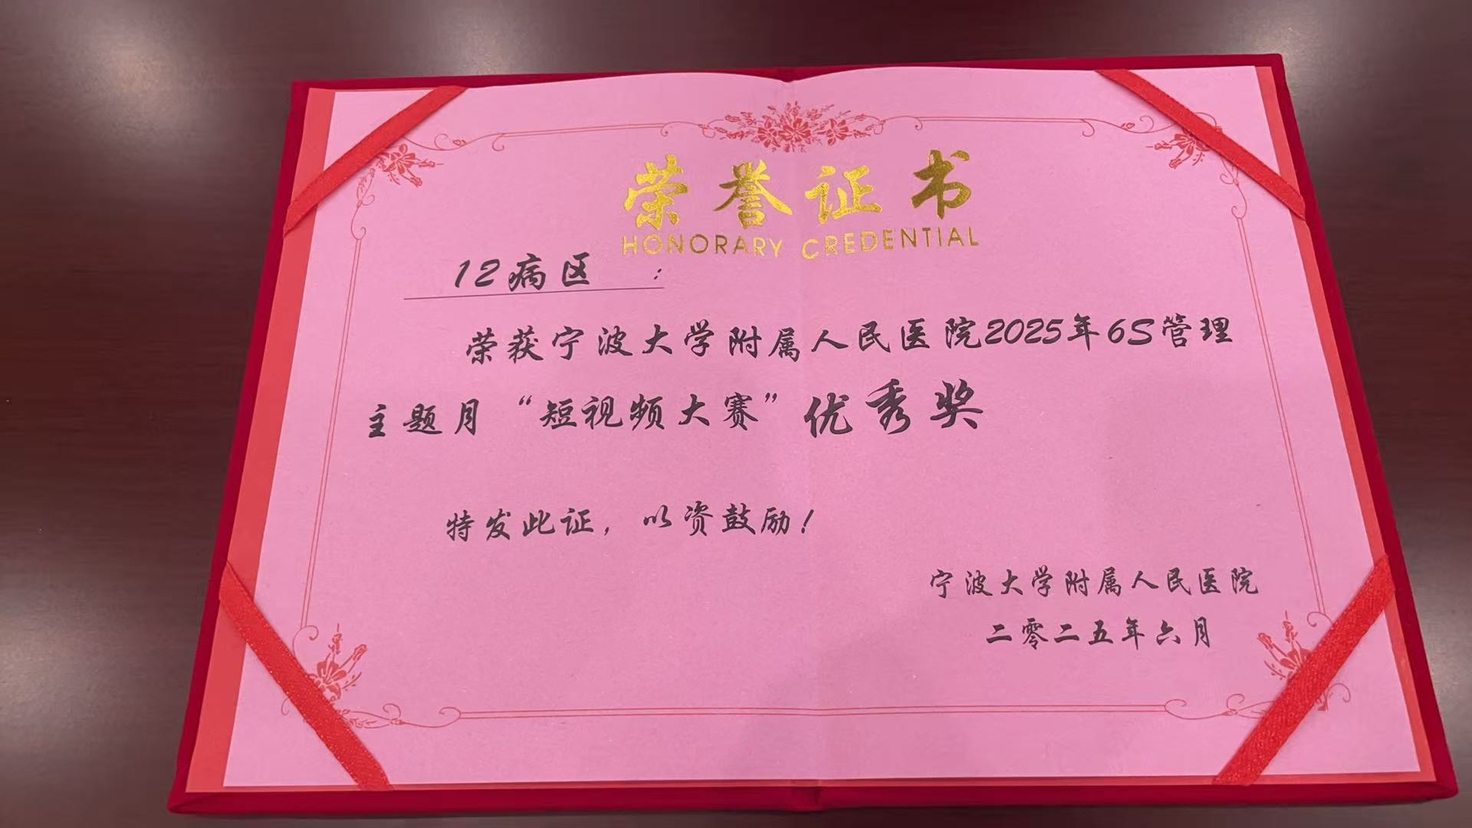 荣誉证书
HONORARY CREDENTIAL
12病区 :
荣获宁波大学附属人民医院2025年6S管理
主题月“短视频大赛”优秀奖
特发此证，以资鼓励！
宁波大学附属人民医院
二零二五年六月